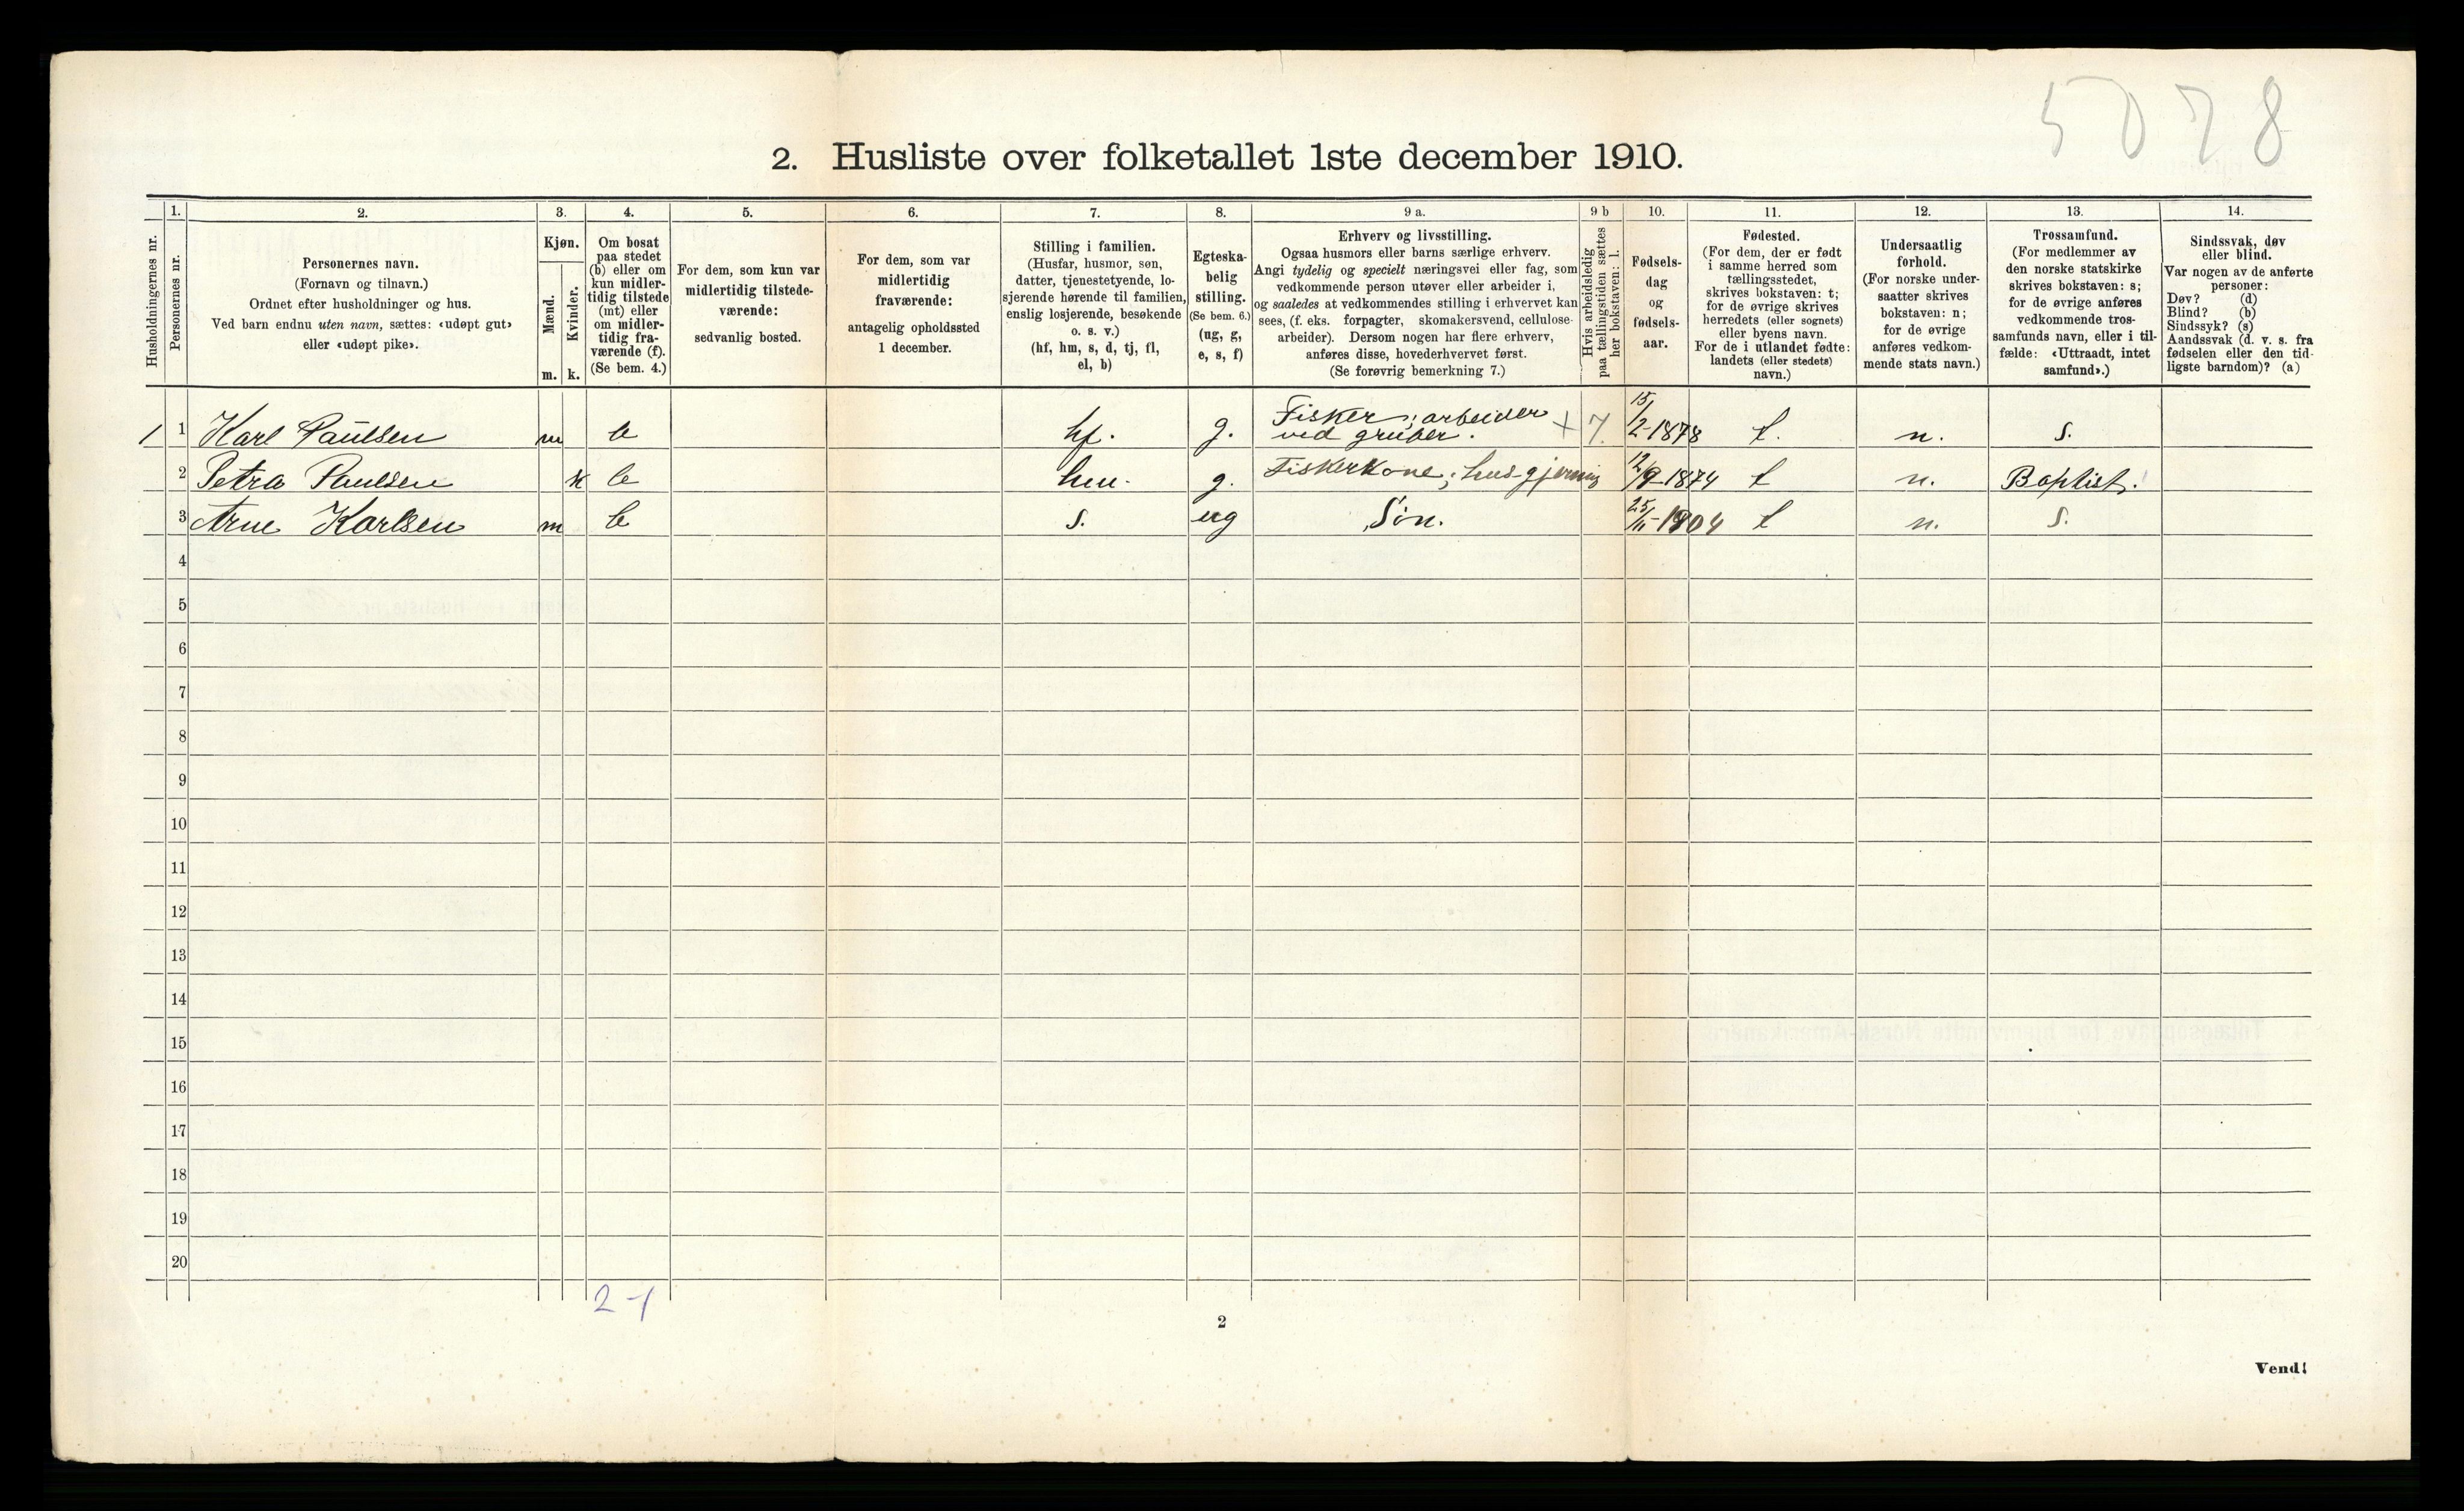 5078
2. Husliste over folketallet 1ste december 1910.
Husholdningernes nr.
1.
Personernes nr.
2.
Personernes navn.
(Fornavn og tilnavn.)
Ordnet efter husholdninger og hus.
Ved barn endnu uten navn, sættes: «udøpt gut»
eller «udøpt pike».
3.
Kjøn.
Mænd.
m.
Kvinder.
k.
4.
Om bosat
paa stedet
(b) eller om
kun midler-
tidig tilstede
(mt) eller
om midler-
tidig fra-
værende (f).
(Se bem. 4.)
5.
For dem, som kun var
midlertidig tilstede-
værende:
sedvanlig bosted.
6.
For dem, som var
midlertidig
fraværende:
antagelig opholdssted
1 december.
7.
Stilling i familien.
(Husfar, husmor, søn,
datter, tjenestetyende, lo-
sjerende hørende til familien,
enslig losjerende, besøkende
o. s. v.)
(hf, hm, s, d, tj, fl,
el, b)
8.
Egteska-
belig
stilling.
(Se bem. 6.)
(ug, g,
e, s, f)
9 a.
Erhverv og livsstilling.
Ogsaa husmors eller barns særlige erhverv.
Angi tydelig og specielt næringsvei eller fag, som
vedkommende person utøver eller arbeider i,
og saaledes at vedkommendes stilling i erhvervet kan
sees, (f. eks. forpagter, skomakersvend, cellulose-
arbeider). Dersom nogen har flere erhverv,
anføres disse, hovederhvervet først.
(Se forøvrig bemerkning 7.)
9 b
Hvis arbeidsledig
paa tællingstiden sættes
her bokstaven: l.
10.
Fødsels-
dag
og
fødsels-
aar.
11.
Fødested.
(For dem, der er født
i samme herred som
tællingsstedet,
skrives bokstaven: t;
for de øvrige skrives
herredets (eller sognets)
eller byens navn.
For de i utlandet fødte:
landets (eller stedets)
navn.)
12.
Undersaatlig
forhold.
(For norske under-
saatter skrives
bokstaven: n;
for de øvrige
anføres vedkom-
mende stats navn.)
13.
Trossamfund.
(For medlemmer av
den norske statskirke
skrives bokstaven: s;
for de øvrige anføres
vedkommende tros-
samfunds navn, eller i til-
fælde: «Uttraadt, intet
samfund».)
14.
Sindssvak, døv
eller blind.
Var nogen av de anførte
personer:
Døv? (d)
Blind? (b)
Sindssyk? (s)
Aandssvak (d. v. s. fra
fødselen eller den tid-
ligste barndom)? (a)
1 1 Karl Paulsen m b hf. g. Fisker; arbeider ved gruber. + 7. 15/2-1878 t. n. s.
2 Petra Paulsen k b hm. g. Fiskerkone; husgjerning 12/9-1874 t n. Baptist.
3 Arne Karlsen m b s. ug Søn. 25/11-1904 t n. s.
4
5
6
7
8
9
10
11
12
13
14
15
16
17
18
19
20
2-1
2
Vend!